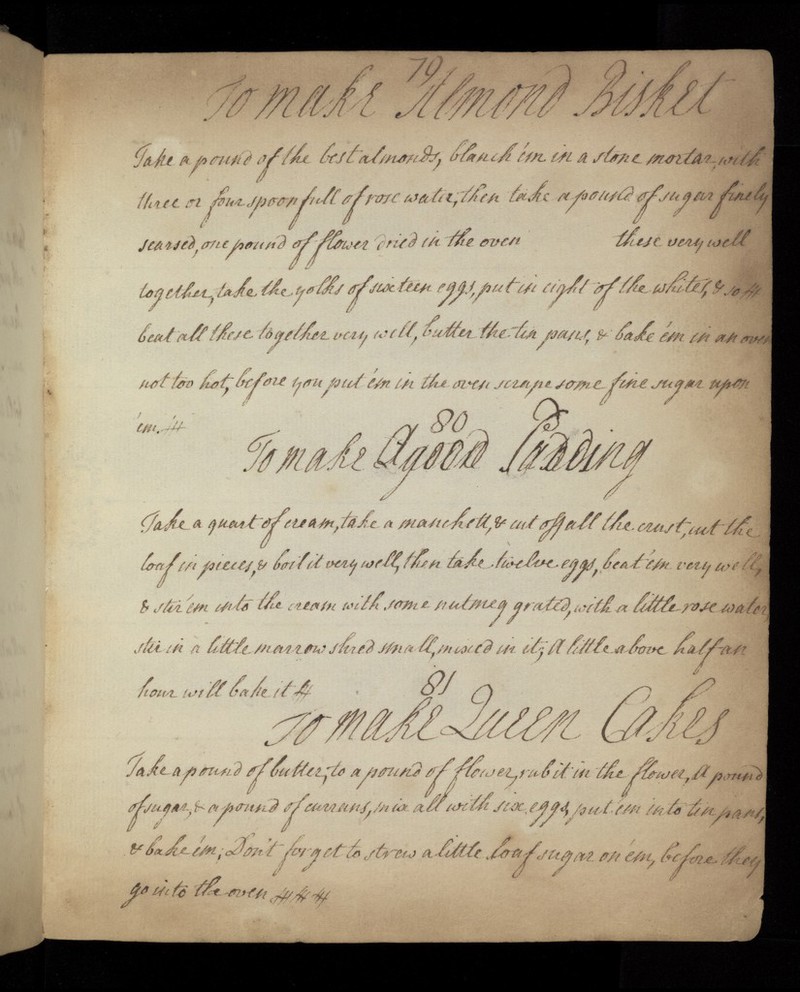 79
To make Almond Bisket
Take a pound of the best almonds, blanch 'em in a stone mortar, with
three or four spoonfull of rose water, then take a pound of sugar finely
searsed, one pound of flower dried in the oven these very well
together, take the yolks of sixteen eggs, put in eight of the whites, & so
beat all these together very well, butter the tin pans, & bake 'em in an oven
not too hot, before you put 'em in the oven scrape some fine sugar upon
'em.
80
To make A good Pudding
Take a quart of cream, take a manchett, & cut off all the crust, cut the
loaf in pieces, & boil it very well, then take twelve eggs, beat 'em very well,
& stir 'em into the cream with some nutmeg grated, with a little rose water,
stir in a little marrow shred small, mixed in it; A little above half an
hour will bake it
81
To make Queen Cakes
Take a pound of butter, to a pound of flower, rub it in the flower, A pound
of sugar, & a pound of currans, mix all with six eggs, put 'em into tin pans,
& bake 'em; Don't forget to strew a little loaf sugar on 'em, before they
go into the oven